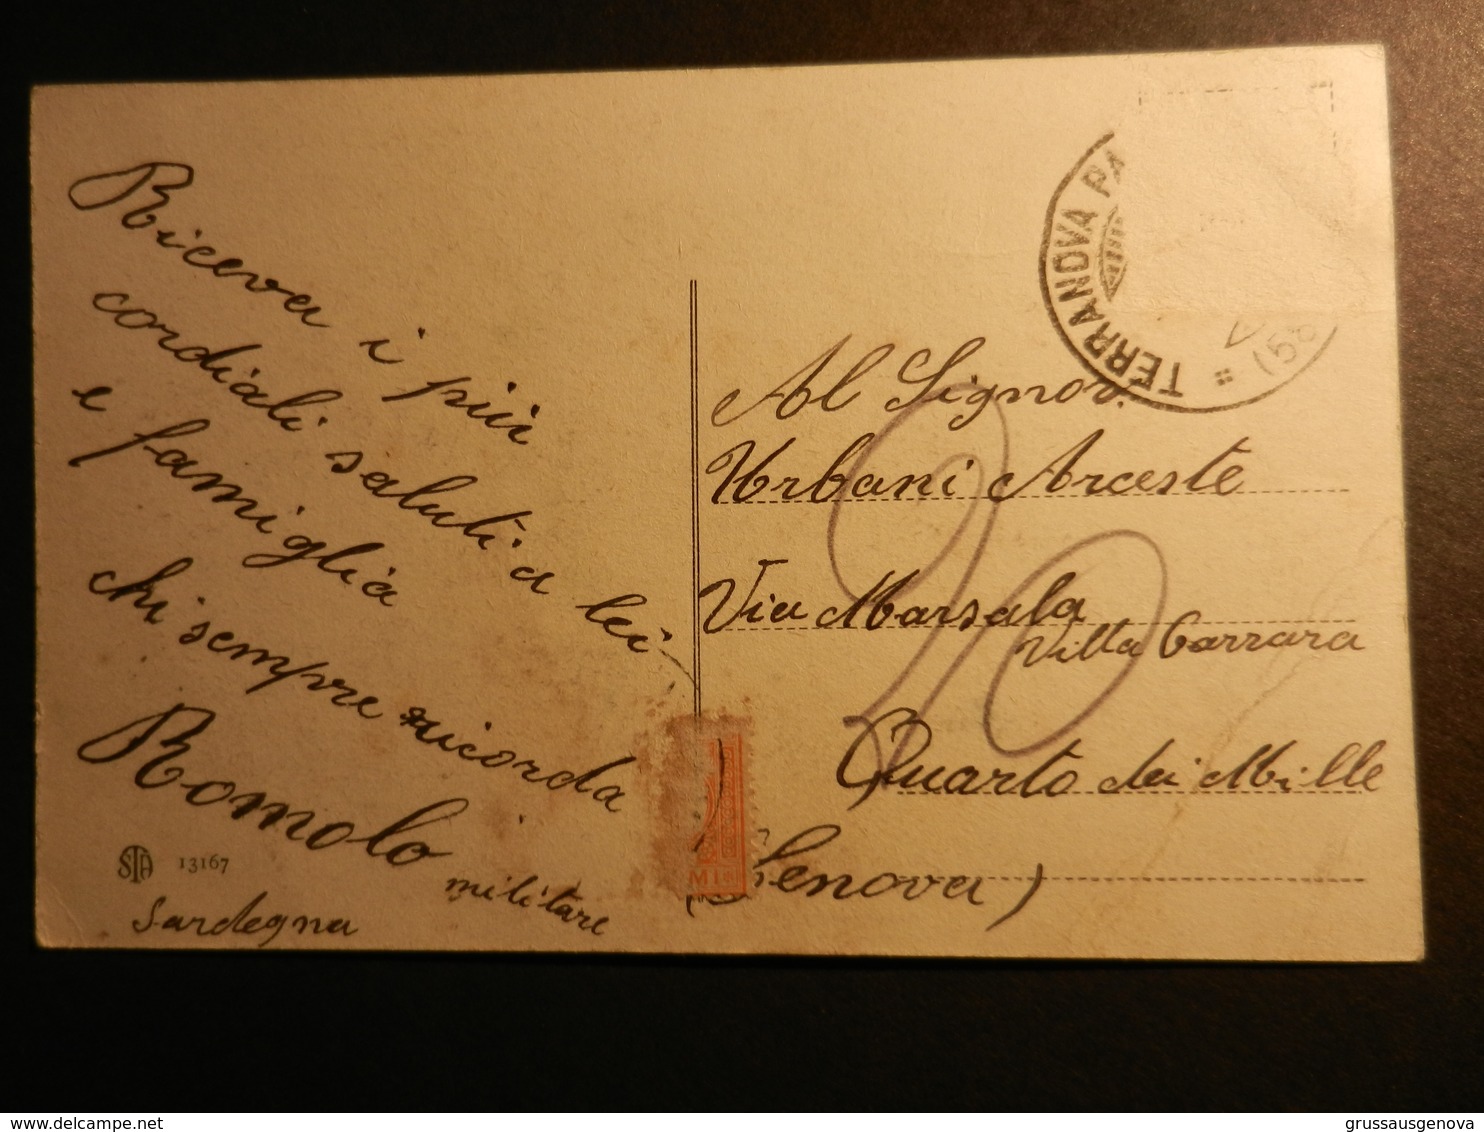 Riceva i più
cordiali saluti a lei
e famiglia
chi sempre ricorda
Romolo
militare
Sardegna
STA 13167
TERRANOVA PA
(58
20
Al Signor
Urbani Arceste
Via Marsala
Villa Carrara
Quarto dei Mille
(Genova)
MI
delcampe.net
grussausgenova